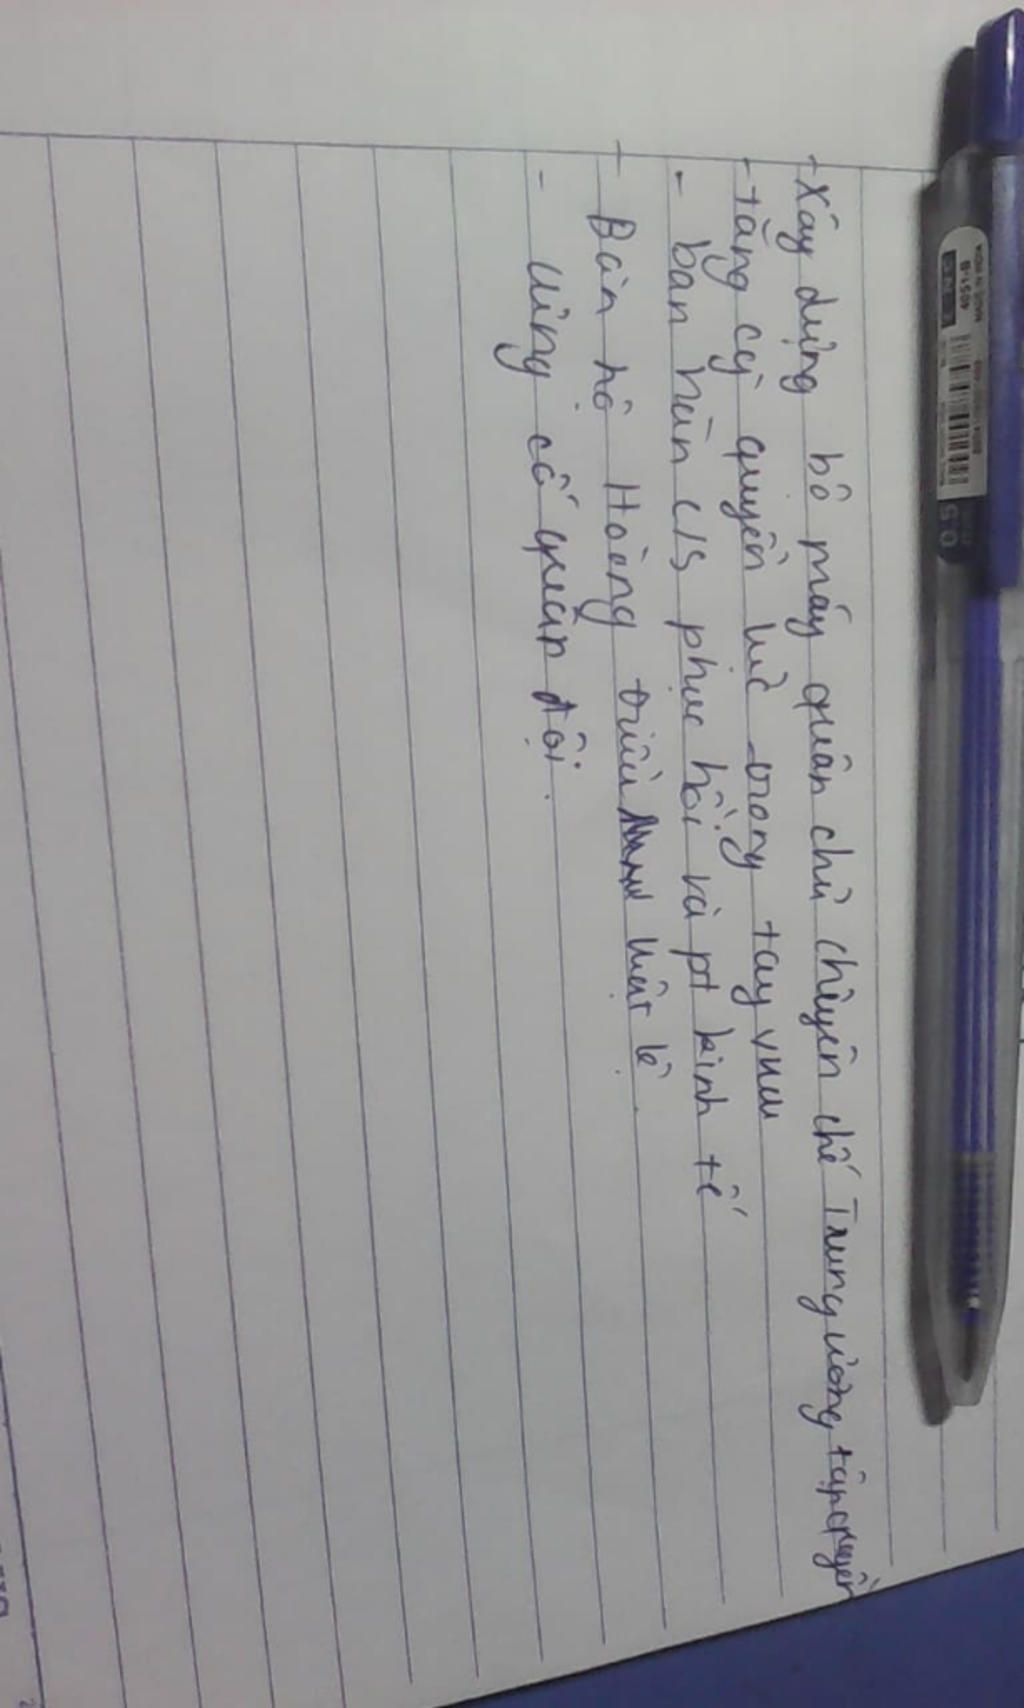 - Xây dựng bộ máy quân chủ chuyên chế Trung ương tập quyền
- tăng cg quyền lực trong tay vua
- ban hàn c/s phục hồi và pt kinh tế
- Bàn hộ Hoàng triều luật lệ.
- củng cố quân đội.